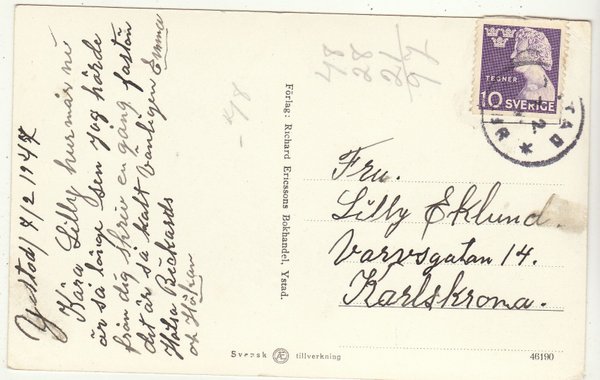 Ystad 4/2 1947
Kära Lilly hur mår ni
är så länge sen jag hörde
från dig skriv en gång fastän
det är så kalt Vänligen Emma
Hälsa Rickards
och Håkan
48
28
21
97
Förlag: Richard Ericssons Bokhandel, Ystad.
TEGNER
10 SVERIGE
Fru.
Lilly Eklund.
Varvsgatan 14.
Karlskrona.
Svensk Æ tillverkning
46190